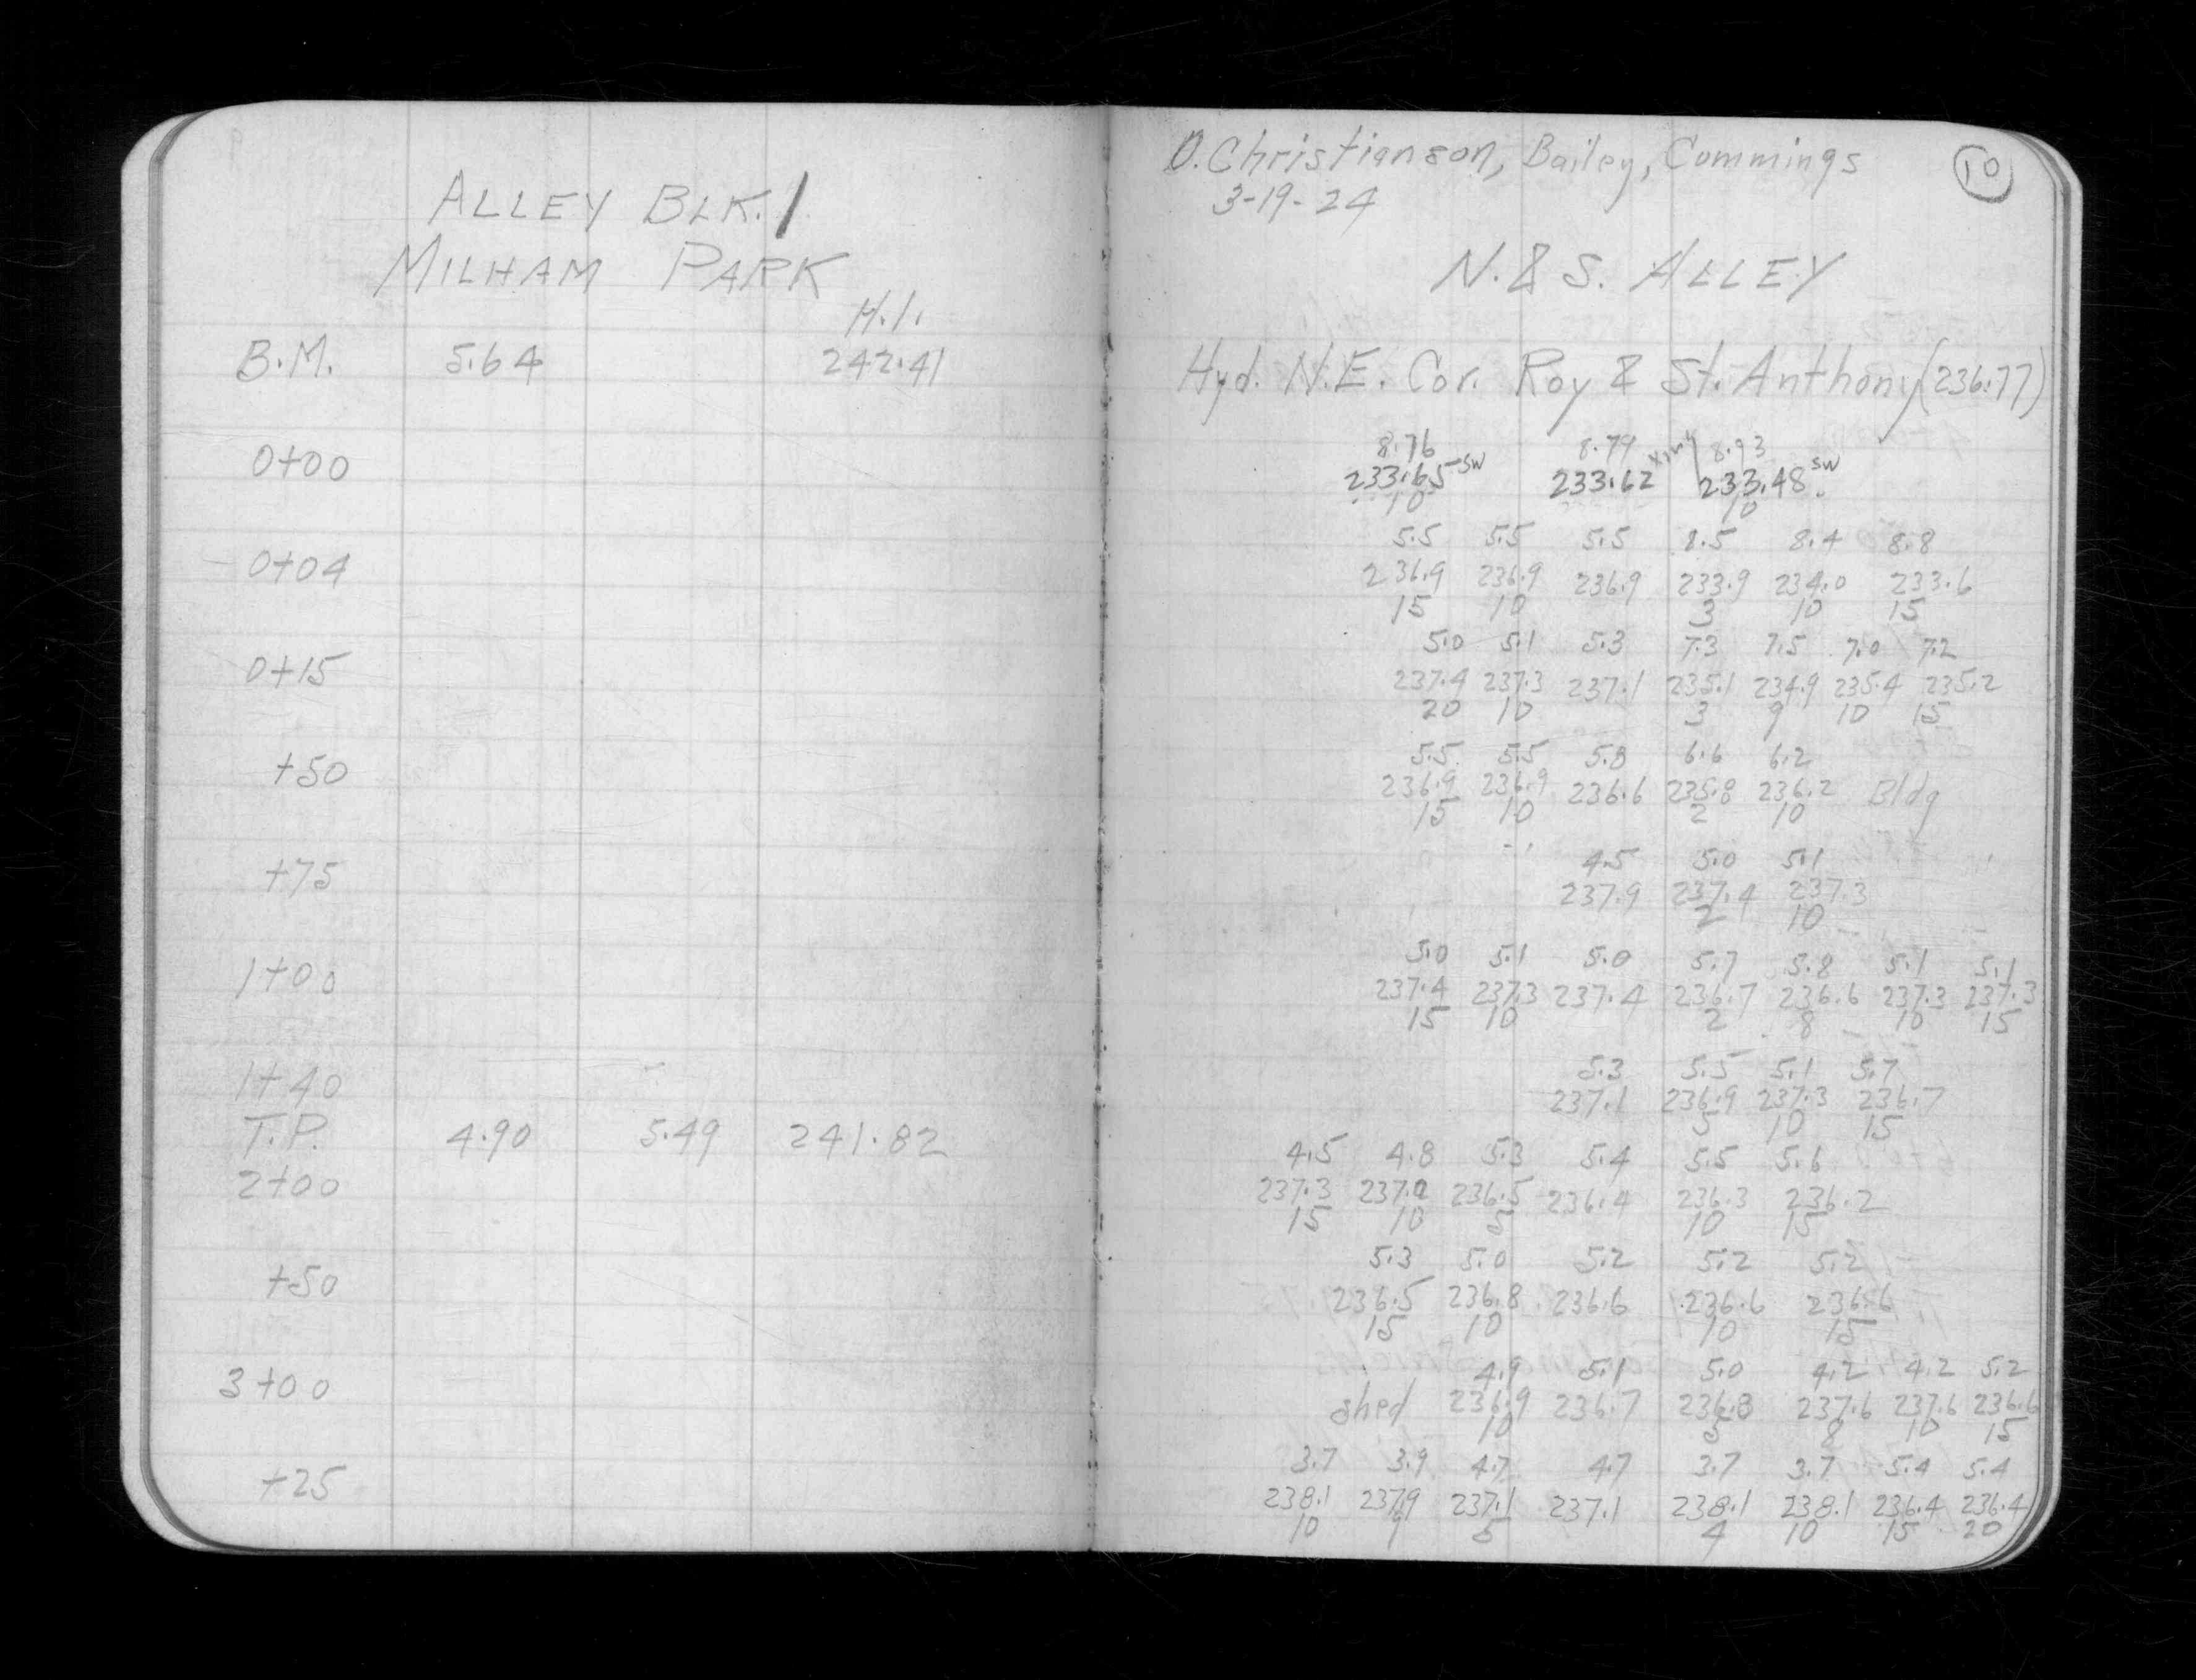 ALLEY BLK. 1
MILHAM PARK
H.I.
B.M. 5.64 242.41
0+00
0+04
0+15
+50
+75
1+00
1+40
T.P. 4.90 5.49 241.82
2+00
+50
3+00
+25
O. Christianson, Bailey, Cummings 10
3-19-24
N. & S. ALLEY
Hyd. N.E. Cor. Roy & St. Anthony (236.77)
8.76 8.79 8.93
233.65 SW 233.62 233.48 SW
10 10
5.5 5.5 5.5 8.5 8.4 8.8
236.9 236.9 236.9 233.9 234.0 233.6
15 10 3 10 15
5.0 5.1 5.3 7.3 7.5 7.0 7.2
237.4 237.3 237.1 235.1 234.9 235.4 235.2
20 10 3 9 10 15
5.5 5.5 5.8 6.6 6.2
236.9 236.9 236.6 235.8 236.2 Bldg
15 10 2 10
4.5 5.0 5.1
237.9 237.4 237.3
2 10
5.0 5.1 5.0 5.7 5.8 5.1 5.1
237.4 237.3 237.4 236.7 236.6 237.3 237.3
15 10 2 8 10 15
5.3 5.5 5.1 5.7
237.1 236.9 237.3 236.7
5 10 15
4.5 4.8 5.3 5.4 5.5 5.6
237.3 237.0 236.5 236.4 236.3 236.2
15 10 5 10 15
5.3 5.0 5.2 5.2 5.2
236.5 236.8 236.6 236.6 236.6
15 10 10 15
4.9 5.1 5.0 4.2 4.2 5.2
shed 236.9 236.7 236.8 237.6 237.6 236.6
10 5 8 10 15
3.7 3.9 4.7 4.7 3.7 3.7 5.4 5.4
238.1 237.9 237.1 237.1 238.1 238.1 236.4 236.4
10 9 5 4 10 15 20